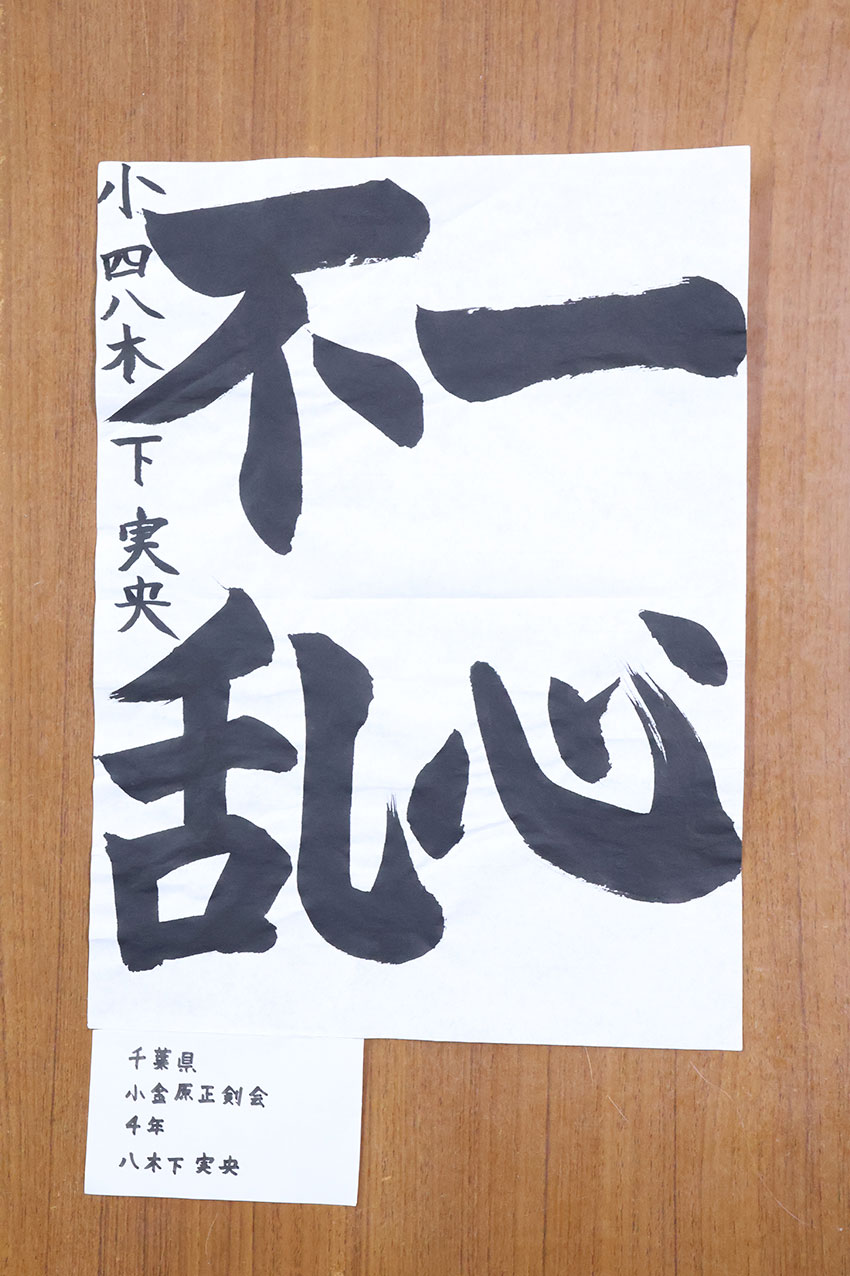 一心
不乱
小四 八木下 実央
千葉県
小金原正剣会
4年
八木下 実央